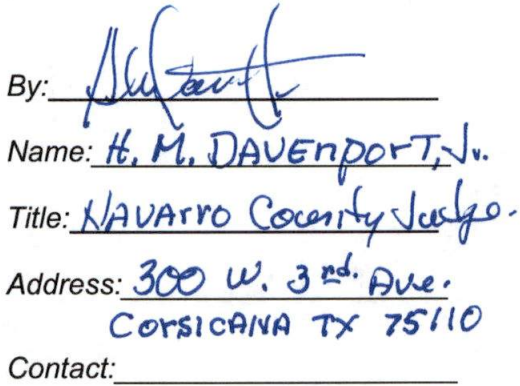 By:
Name: H. M. DAVENPORT, Jr.
Title: NAVArro County Judge.
Address: 300 W. 3rd. Ave.
CorsICANA TX 75110
Contact: